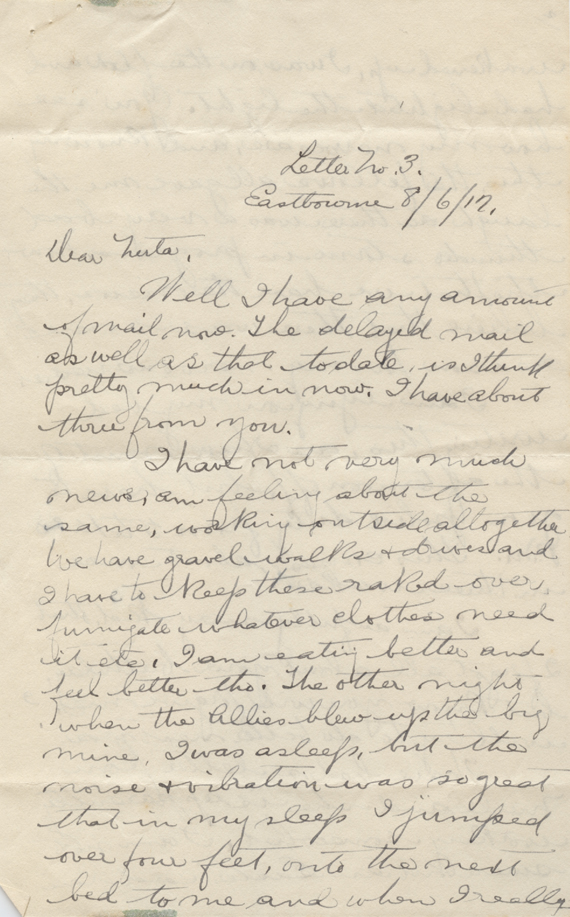 Letter No. 3.
Eastbourne 8/6/17.
Dear Neita,
Well I have any amount
of mail now. The delayed mail
as well as that to date, is I think
pretty much in now. I have about
three from you.
I have not very much
news, am feeling about the
same, working outside alltogether
We have gravel walks & drives and
I have to keep these raked over,
fumigate whatever clothes need
it etc. I am eating better and
feel better tho. The other night
when the Allies blew up the big
mine, I was asleep, but the
noise & vibration was so great
that in my sleep I jumped
over four feet, onto the next
bed to me and when I really